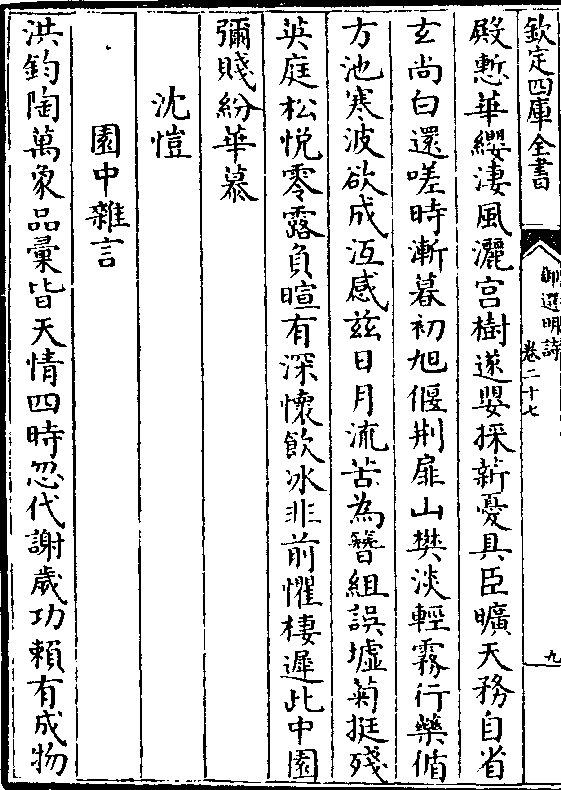 欽定四庫全書
御選明詩
卷二十七
九
殿慙華纓淒風灑宫樹遂嬰採薪憂具臣曠天務自省
玄尚白還嗟時漸暮初旭偃荆扉山樊淡輕霧行藥偱
方池寒波欲成沍感兹日月流苦為簪組誤墟菊挺殘
英庭松悦零露負暄有深懷飲冰非前懼棲遲此中園
彌賤紛華慕
沈愷
園中雜言
洪鈞陶萬象品彚皆天情四時忽代謝歲功賴有成物